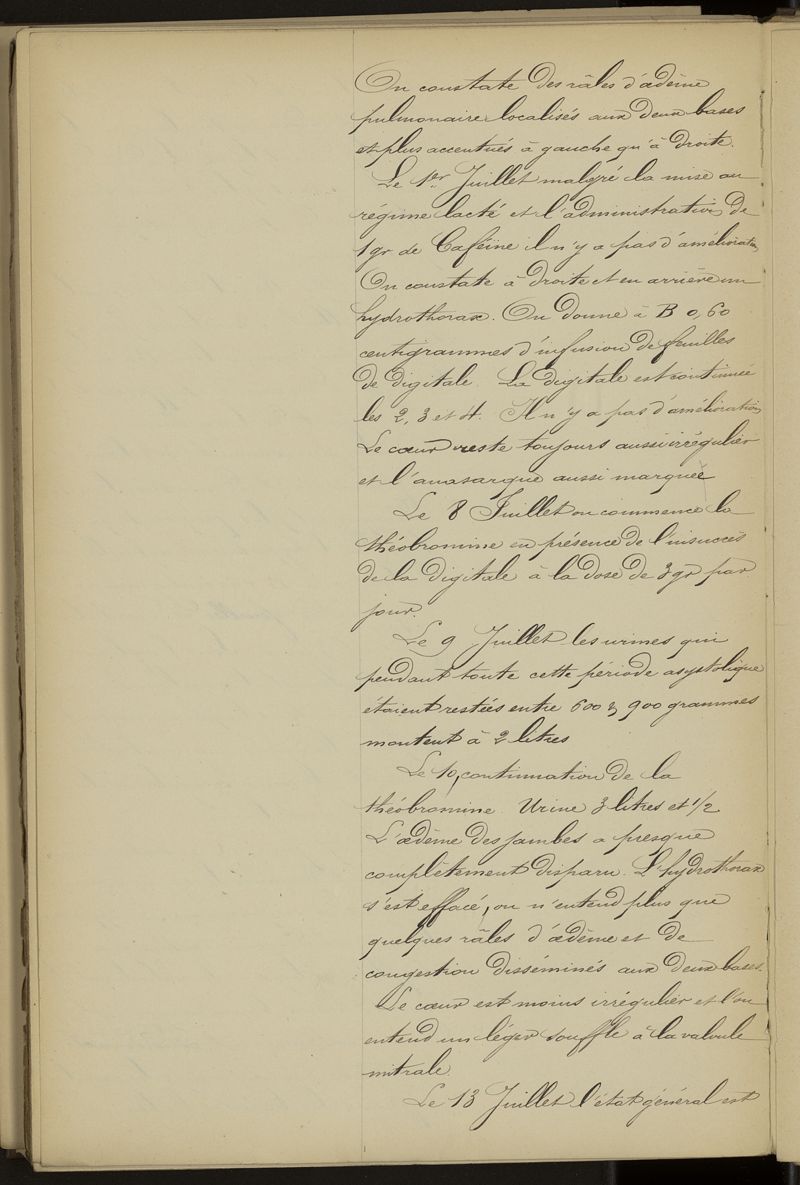 On constate des râles d'œdème
pulmonaire localisés aux deux bases
et plus accentués à gauche qu'à droite.
Le 1er Juillet malgré la mise au
régime lacté et l'administration de
1gr de Caféine il n'y a pas d'amélioration
On constate à droite et en arrière un
hydrothorax. On donne à B 0,60
centigrammes d'infusion de feuilles
de digitale. La digitale est continuée
les 2, 3 et 4. Il n'y a pas d'amélioration
Le cœur reste toujours aussi irrégulier
et l'anasarque aussi marquée
Le 8 Juillet on commence la
théobromine en présence de l'insuccès
de la digitale à la dose de 3gr par
jour.
Le 9 Juillet les urines qui
pendant toute cette période asystolique
étaient restées entre 600 & 900 grammes
montent à 2 litres
Le 10, continuation de la
théobromine. Urine 3 litres et 1/2
L'œdème des jambes a presque
complètement disparu. L'hydrothorax
s'est effacé, on n'entend plus que
quelques râles d'œdème et de
congestion disséminés aux deux bases.
Le cœur est moins irrégulier et l'on
entend un léger souffle à la valvule
mitrale.
Le 13 Juillet l'état général est